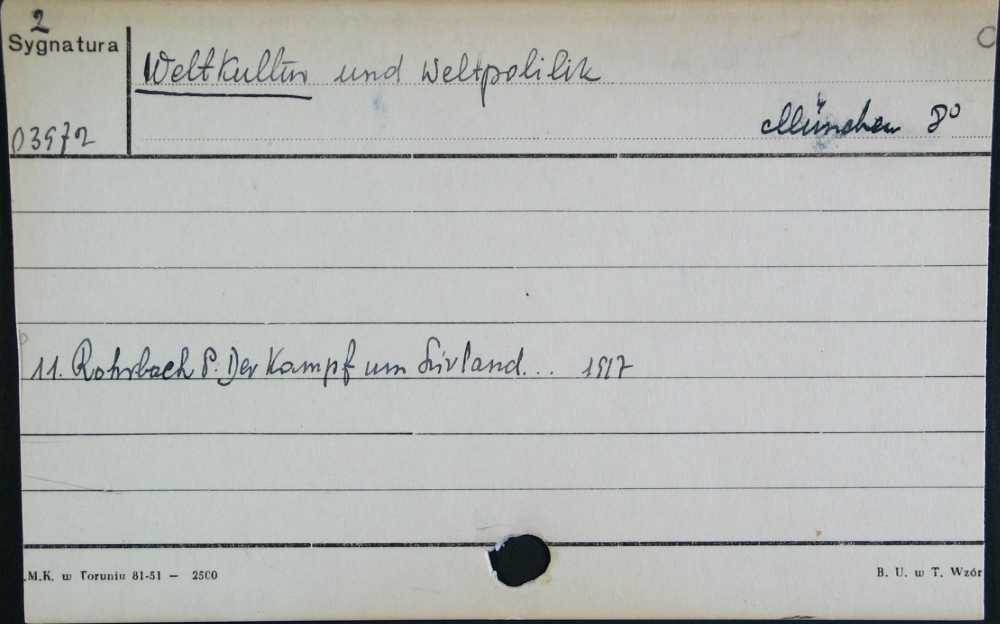 2
Sygnatura
Weltkultur und Weltpolitik
03972
München 8°
11. Rohrbach P. Der Kampf um Livland... 1917
.M.K. w Toruniu 81-51 — 2500
B. U. w T. Wzór